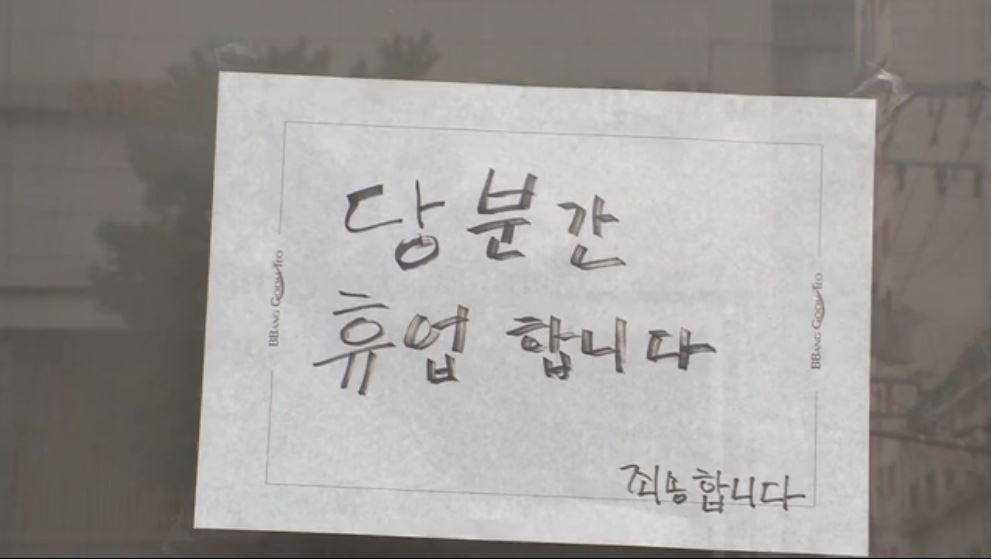 당분간
휴업 합니다
죄송합니다
BBANG GOOM TEO
BBANG GOOM TEO